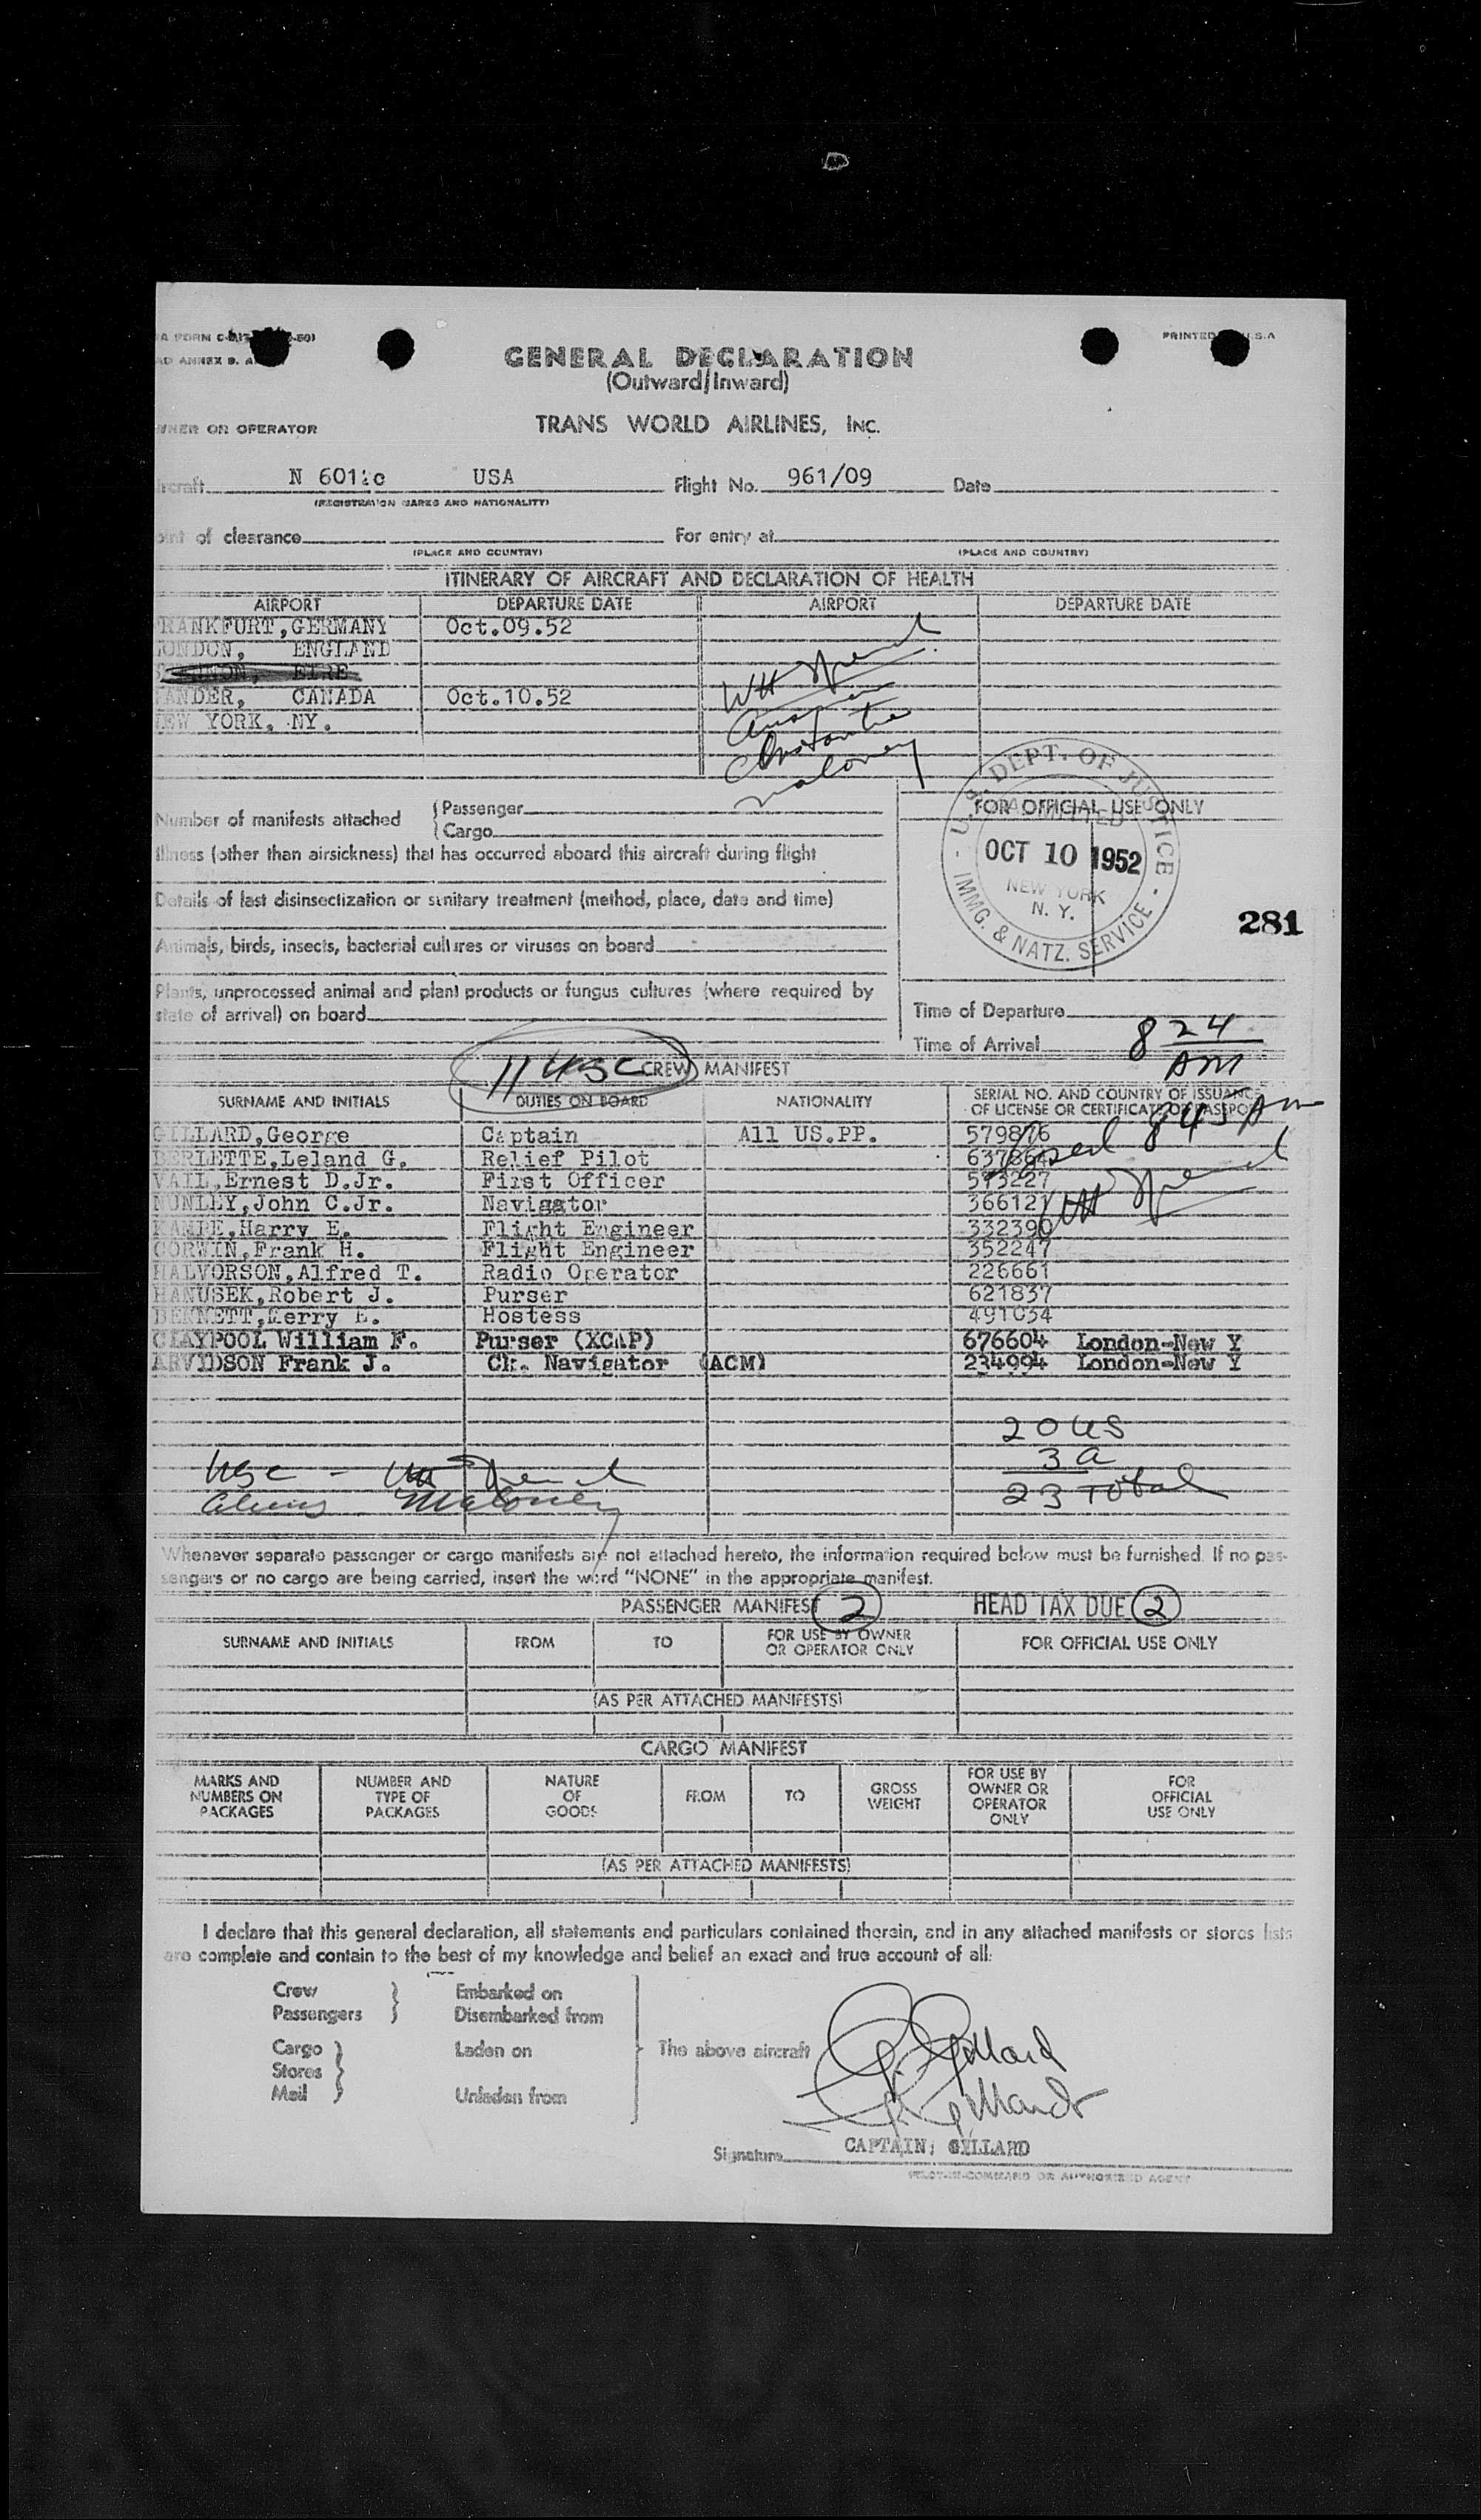 PRINTED U.S.A
GENERAL DECLARATION
(Outward/Inward)
OWNER OR OPERATOR TRANS WORLD AIRLINES, INC.
Aircraft N USA Flight No. 961/09 Date
(REGISTRATION MARKS AND NATIONALITY)
Point of clearance For entry at
(PLACE AND COUNTRY) (PLACE AND COUNTRY)
ITINERARY OF AIRCRAFT AND DECLARATION OF HEALTH
AIRPORT DEPARTURE DATE AIRPORT DEPARTURE DATE
FRANKFURT, GERMANY Oct.09.52
LONDON, ENGLAND
SHANNON, EIRE
GANDER, CANADA Oct.10.52
NEW YORK, NY.
Maloney
Number of manifests attached { Passenger
{ Cargo
FOR OFFICIAL USE ONLY
U.S. DEPT. OF JUSTICE - IMMG. & NATZ. SERVICE -
ADMITTED
OCT 10 1952
NEW YORK
N. Y.
281
Illness (other than airsickness) that has occurred aboard this aircraft during flight
Details of last disinsectization or sanitary treatment (method, place, date and time)
Animals, birds, insects, bacterial cultures or viruses on board
Plants, unprocessed animal and plant products or fungus cultures (where required by
state of arrival) on board
Time of Departure
Time of Arrival 8 24 AM
11 USC CREW MANIFEST
SURNAME AND INITIALS DUTIES ON BOARD NATIONALITY SERIAL NO. AND COUNTRY OF ISSUANCE
OF LICENSE OR CERTIFICATE OR PASSPORT
845 Am
GILLARD,George Captain All US.PP. 579876
BERLETTE,Leland G. Relief Pilot
VAIL,Ernest D.Jr. First Officer 573227
NUNLEY,John C.Jr. Navigator 366121
KAMPE,Harry E. Flight Engineer 332390
CORWIN,Frank H. Flight Engineer 352247
HALVORSON,Alfred T. Radio Operator 226661
HANUSEK,Robert J. Purser 621837
BENNETT, E. Hostess 491034
CLAYPOOL William F. Purser (XCAP) 676604 London-New Y
ARVIDSON Frank J. Ck. Navigator (ACM) 234994 London-New Y
20 US
3 a
23 Total
USC -
Aliens Maloney
Whenever separate passenger or cargo manifests are not attached hereto, the information required below must be furnished. If no pas-
sengers or no cargo are being carried, insert the word "NONE" in the appropriate manifest.
PASSENGER MANIFEST 2 HEAD TAX DUE 2
SURNAME AND INITIALS FROM TO FOR USE BY OWNER
OR OPERATOR ONLY FOR OFFICIAL USE ONLY
(AS PER ATTACHED MANIFESTS)
CARGO MANIFEST
MARKS AND
NUMBERS ON
PACKAGES
NUMBER AND
TYPE OF
PACKAGES
NATURE
OF
GOODS
FROM
TO
GROSS
WEIGHT
FOR USE BY
OWNER OR
OPERATOR
ONLY
FOR
OFFICIAL
USE ONLY
(AS PER ATTACHED MANIFESTS)
I declare that this general declaration, all statements and particulars contained therein, and in any attached manifests or stores lists
are complete and contain to the best of my knowledge and belief an exact and true account of all:
Crew } Embarked on
Passengers } Disembarked from
Cargo } Laden on The above aircraft
Stores }
Mail } Unladen from
G. Gillard
G. Gillard
Signature CAPTAIN, GILLARD
PILOT-IN-COMMAND OR AUTHORIZED AGENT